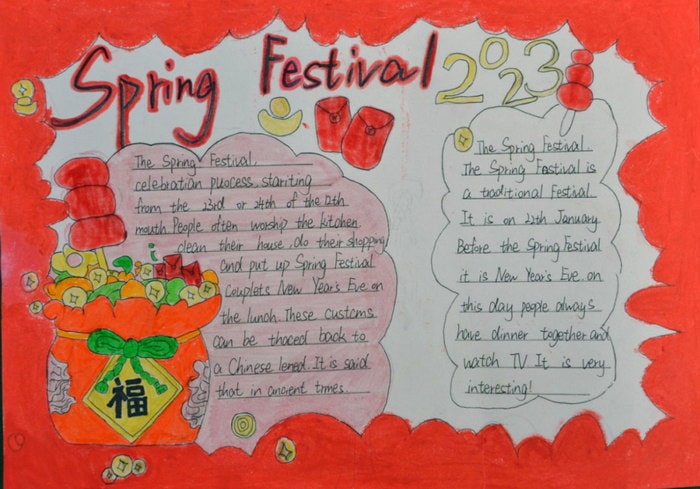 Spring Festival 2023
The Spring Festival,
celebration puocess, stariting
from the 23rd or 24th of the 12th
mouth. People often worship the kitchen
clean their house, do their shopping
and put up Spring Festival
couplets New Year's Eve on
the lunch. These customs
can be thaced back to
a Chinese lened. It is said
that in ancient tmes.
福
The Spring Festival.
The Spring Festival is
a traditional Festival
It is on 22th January
Before the Spring Festival
it is New Year's Eve. on
this day people always
have dinner together and
watch TV. It is very
interesting!